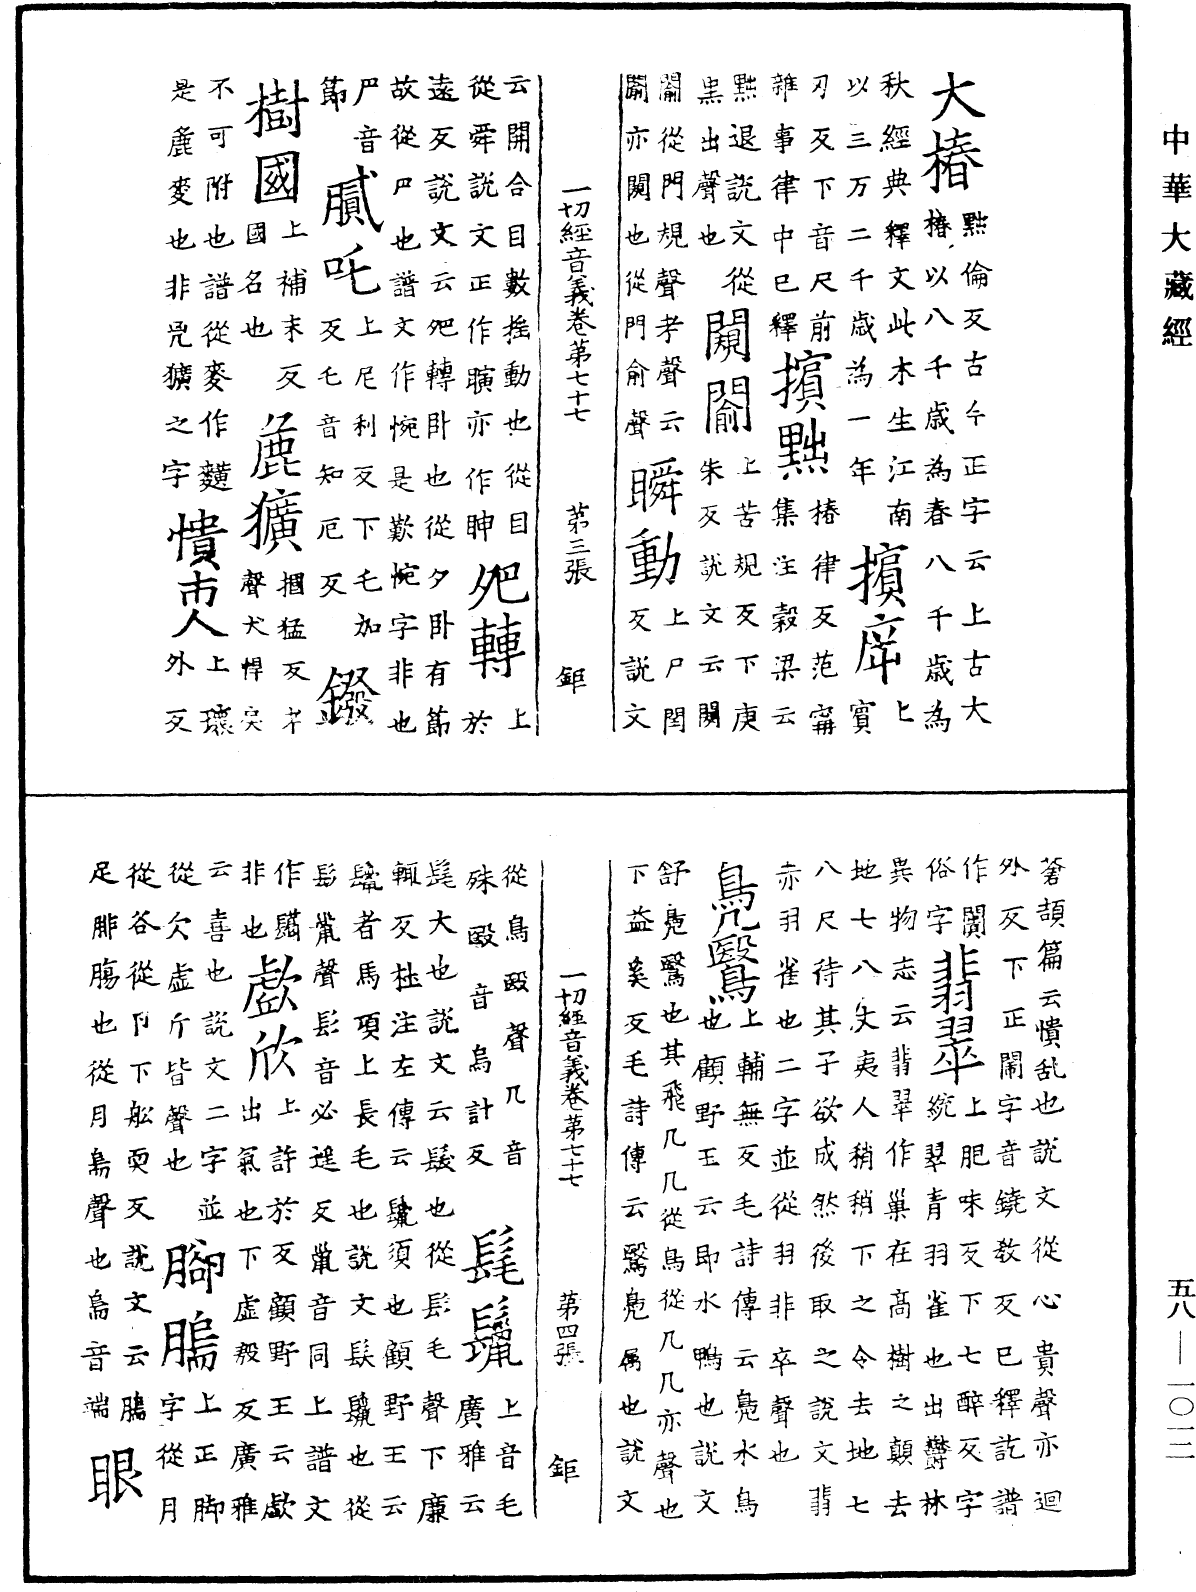 中華大藏經
大椿椿點倫反古今正字云上古大
椿以八千歳為春八千歳為
秋經典釋文此木生江南 擯庌上
以三万二千歳為一年 賓
刃反下音尺前 擯黜椿律反范甯
雜事律中已釋 集注穀梁云
黜退説文從 闚闟上苦規反下庚
黒出聲也 朱反説文云闚
闟從門規聲考聲云 瞬動上尸閏
闟亦闚也從門俞聲 反説文
一切經音義卷第七十七 第三張 鉅
云開合目數揺動也從目 夗轉上
從舜説文正作瞚亦作眒 於
遠反説文云夗轉卧也從夕卧有節
故從卪也譜文作惋是歎惋字非也
尸音 膩吒上尼利反下毛加 鏺
節 反乇音知厄反
樹國上補末反 麁獷摑猛反 
國名也 聲犬悍
不可附也譜從麥作䵃 憒市人上瓌
是麁麥也非皃獷之字 外反
蒼頡篇云憒乱也説文從心貴聲亦迴
外反下正閙字音鐃教反已釋訖譜
作閙 翡翠上肥味反下七醉反字
俗字 統翠青羽雀也出欝林
異物志云翡翠作巢在髙樹之顛去
地七八丈夷人稍稍下之令去地七
八尺待其子欲成然後取之説文翡
赤羽雀也二字並從羽非卒聲也
鳧鷖上輔無反毛詩傳云鳧水鳥
也顧野王云即水鴨也説文
舒鳧鷖也其飛几几從鳥從几几亦聲也
下益奚反毛詩傳云鷖鳧属也説文
一切經音義卷第七十七 第四張 鉅
從鳥殹聲几音 髦鬣上音毛
殊殹音烏計反 廣雅云
髦大也説文云髮也從髟毛聲下廉
輒反杜注左傳云鬣須也顧野王云
鬣者馬項上長毛也説文髮鬣也從
髟鼠聲髟音必遥反鼠音同上譜文
作 歔欣上許於反顧野王云歔
非也 出氣也下虚殷反廣雅
云喜也説文二字並 腳腨上正脚
從欠虚斤皆聲也 字從月
從谷從卪下舩耎反説文云腨
足腓膓也從月耑聲也耑音端 眼
五八—一〇一二